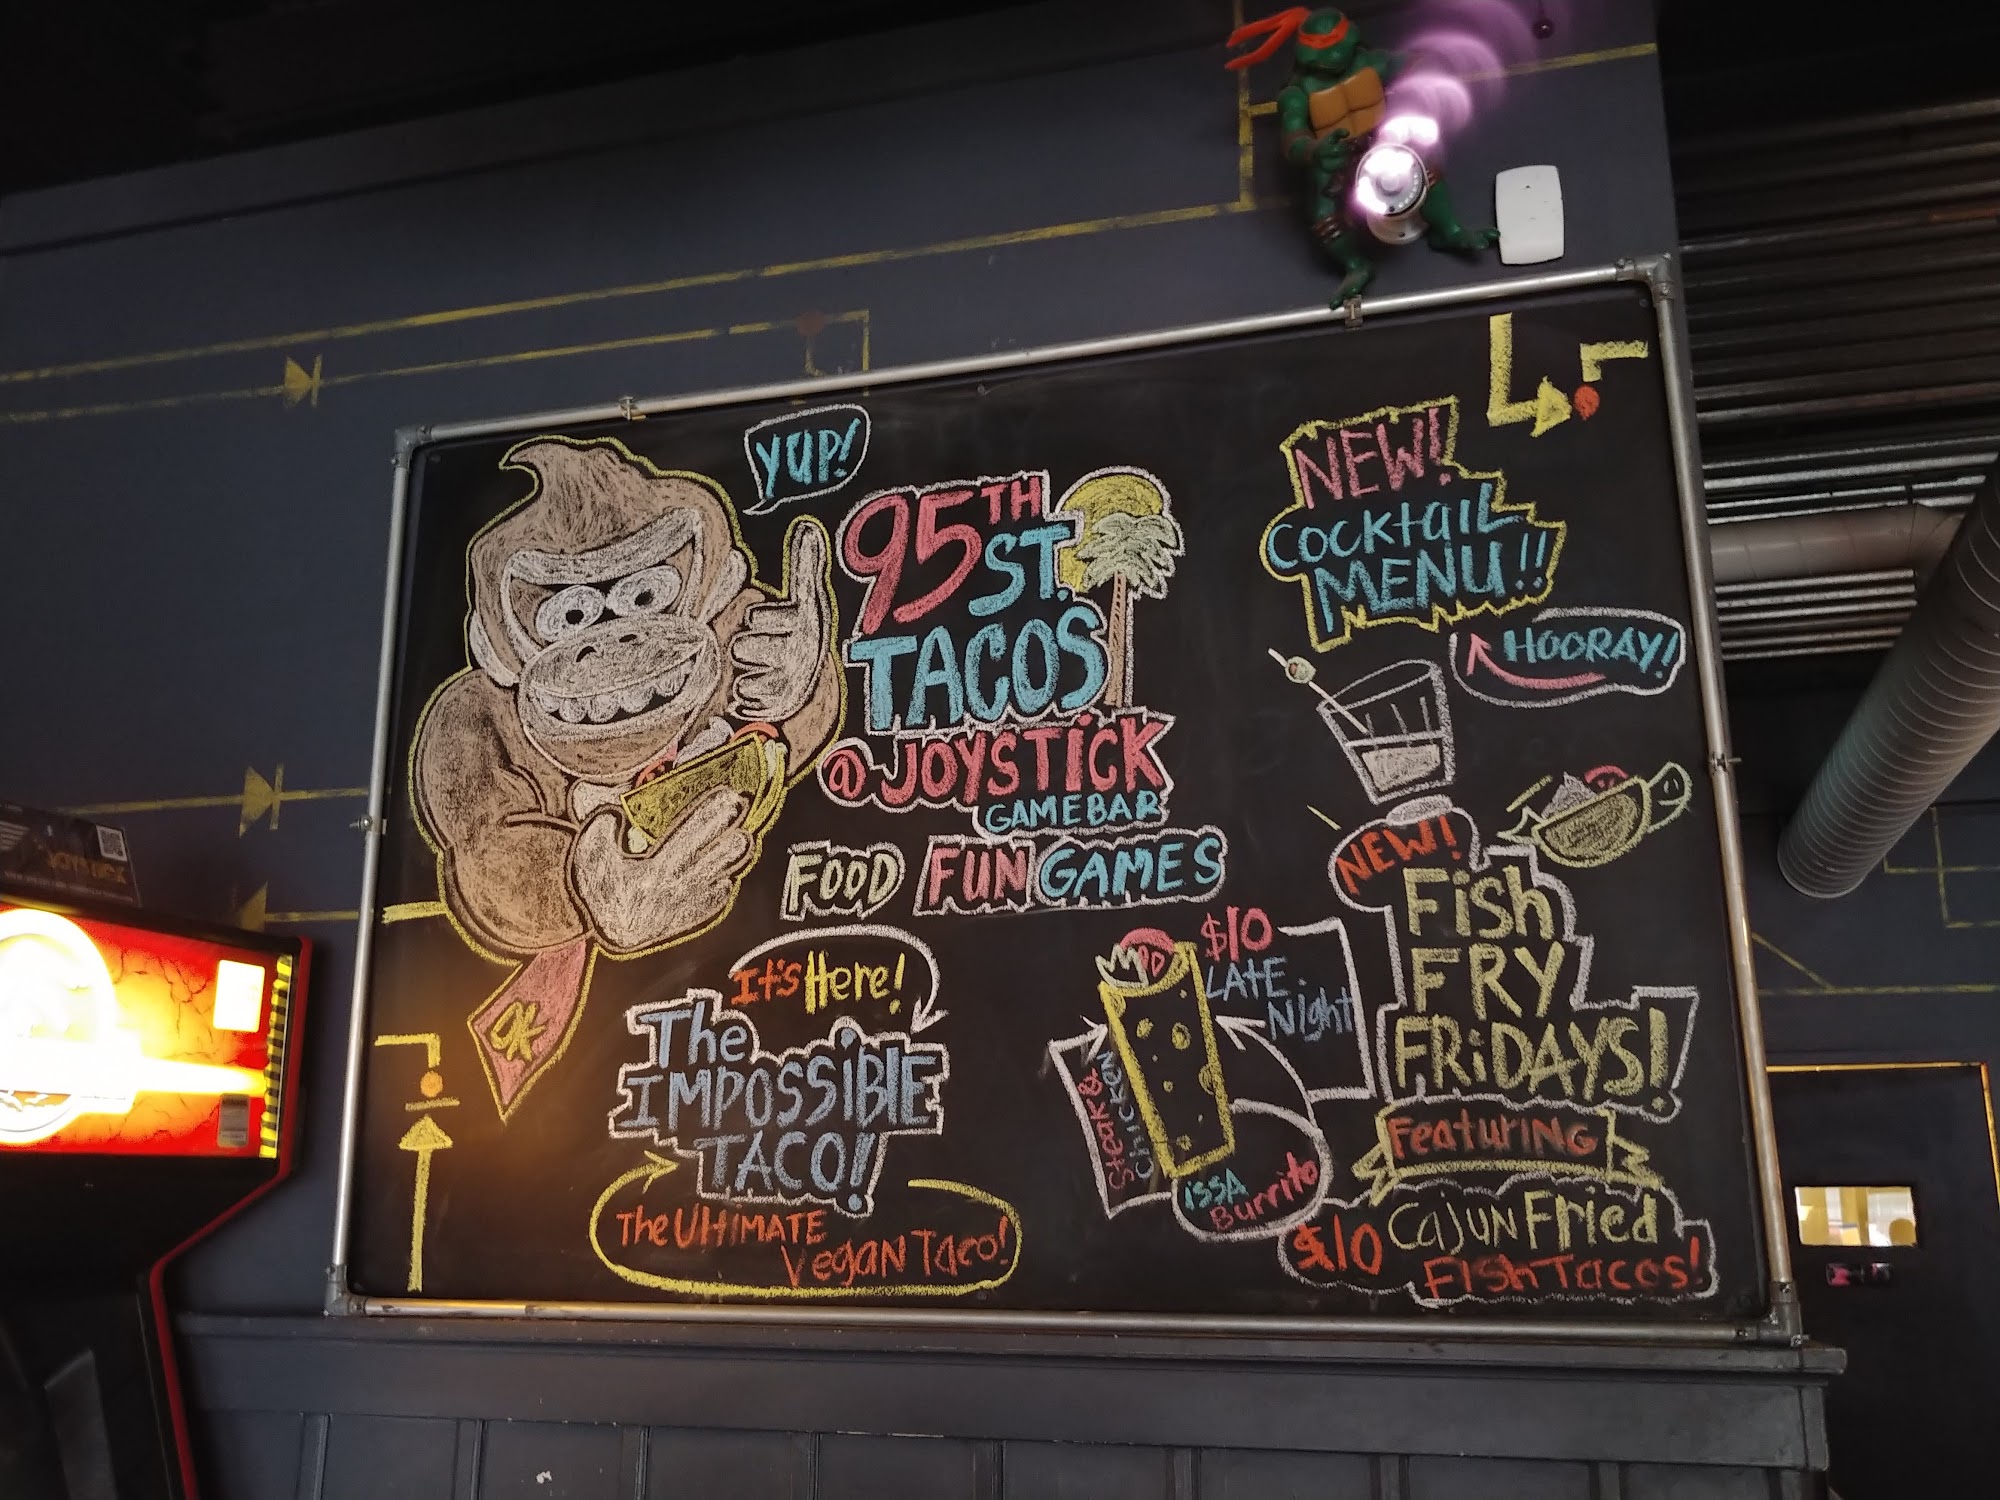 YUP!
95TH
ST.
TACOS
@ JOYSTiCK
GAMEBAR
FOOD FUN GAMES
It's Here!
The
IMPOSSiBLE
TACO!
The ULtiMATE
Vegan Taco!
DK
$10
LATE
Night
Steak &
Chicken
issA
Burrito
NEW!
Cocktail
MENU!!
HOORAY!
NEW!
Fish
FRY
FRiDAYS!
FeatuRiNG
$10 Cajun Fried
Fish Tacos!